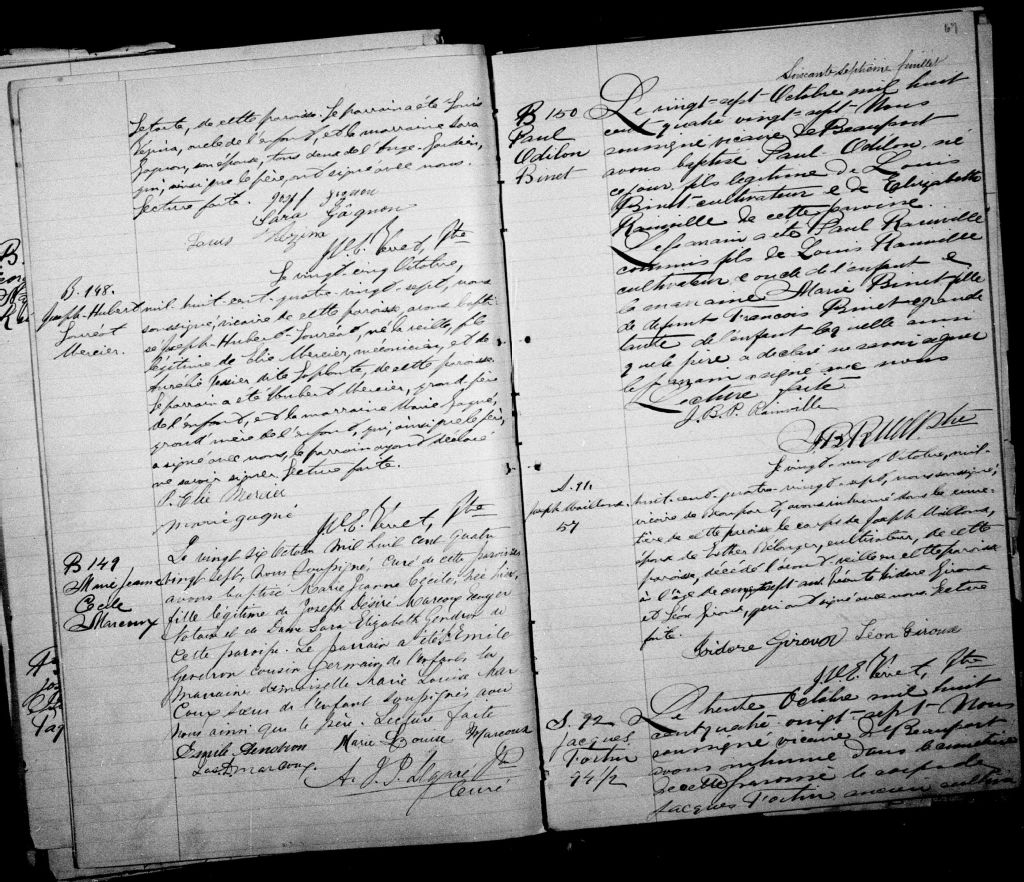 Laporte, de cette paroisse. Le parrain a été Louis
Vézina, oncle de l'enfant, et la marraine Sara
Gagnon, son épouse, tous deux de l'Ange-Gardien,
qui, ainsi que le père, ont signé avec nous.
Lecture faite.
Sara Gâgnon
Louis Vézina
Ptre
B. 148.
Joseph-Hubert
Mercier.
Le vingt cinq Octobre,
mil-huit-cent-quatre-vingt-sept, nous
soussigné, vicaire de cette paroisse, avons bapti-
sé Joseph-Hubert, né la veille, fils
légitime de Elie Mercier, mécanicien, et de
Aurélie Tessier dite Laplante, de cette paroisse.
Le parrain a été Hubert Mercier, grand père
de l'enfant, et la marraine Marie Gagné,
grand'mère de l'enfant, qui, ainsi que le père,
a signé avec nous, le parrain ayant déclaré
ne savoir signer. Lecture faite.
P. Elie Mercier
Marie gagné
Ptre
B 149
Marie Jeanne
Cécile
Marcoux
Le vingt six Octobre Mil huit cent quatre
vingt sept, Nous soussigné, Curé de cette paroisse
avons baptisé Marie Jeanne Cécile, née hier,
fille légitime de Joseph Désiré Marcoux Ecuyer
Notaire et de Dame Sara Elizabeth Gendron de
Cette paroisse. Le parrain a été Emile
Gendron cousin Germain de l'enfant la
Marraine demoiselle Marie Louise Mar
Coux sœur de l'enfant soussignés avec
Nous ainsi que le père. Lecture faite
Emile Gendron Marie Louise Marcoux
Jos. D. Marcoux.
Ptre
Curé
67
Soixante septième feuillet
B 150
Paul
Odilon
Binet
Le vingt-sept Octobre mil huit
cent quatre vingt-sept Nous
soussigné vicaire de Beauport
avons baptisé Paul-Odilon, né
ce jour, fils légitime de Louis
Binet cultivateur e de Elizabeth
Rainville de cette paroisse.
Le parrain a été Paul Rainville
commis fils de Louis Rainville
cultivateur e oncle de l'enfant e
la marraine Marie Binet fille
de défunt François Binet e grande
tante de l'enfant laquelle ainsi
que le père a déclaré ne savoir signer
le parrain a signé avec nous
Lecture faite
J. B. P. Rainville
Ptre
Le vingt-neuf Octobre, mil-
S. 91.
Joseph Maillons.
57
huit-cent-quatre-vingt-sept, nous soussigné,
vicaire de Beauport, avons inhumé dans le cime-
tière de cette paroisse le corps de Joseph Maillons,
époux de Esther Bélanger, cultivateur, de cette
paroisse, décédé l'avant-veille en cette paroisse
à l'âge de cinquante sept ans. Présents Isidore Giroux
et Léon Giroux, qui ont signé avec nous. Lecture
faite.
Isidore Giroux Léon Giroux
Ptre
S. 92
Jacques
Fortin
74½
Le trente Octobre mil huit
cent quatre vingt-sept Nous
soussigné vicaire de Beauport
avons inhumé dans le cimetière
de cette paroisse le corps de
Jacques Fortin ancien cultiva